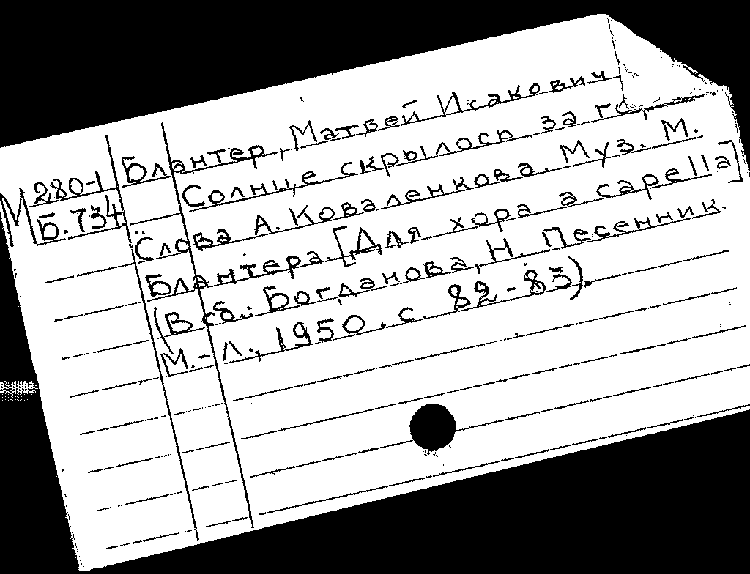 Блантер, Матвей Исакович
М 280-1
Солнце скрылось за
Б.734
Слова А. Коваленкова. Муз. М.
Блантера. [Для хора a capella]
(В сб.: Богданова, Н. Песенник.
М.-Л., 1950. с. 82-83).